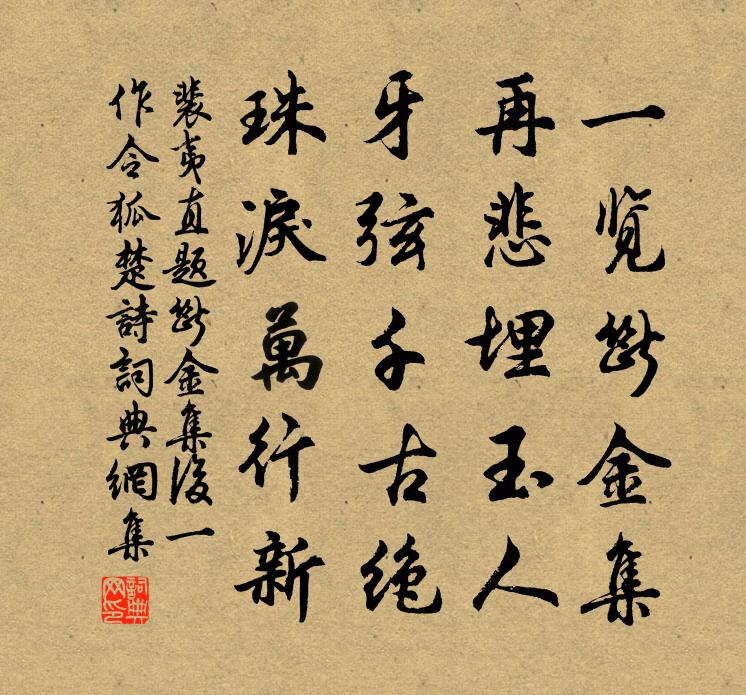 一览断金集
再悲埋玉人
牙弦千古绝
珠淚萬行新
裴夷直题断金集後一
作令狐楚詩詞典網集
詞典网印